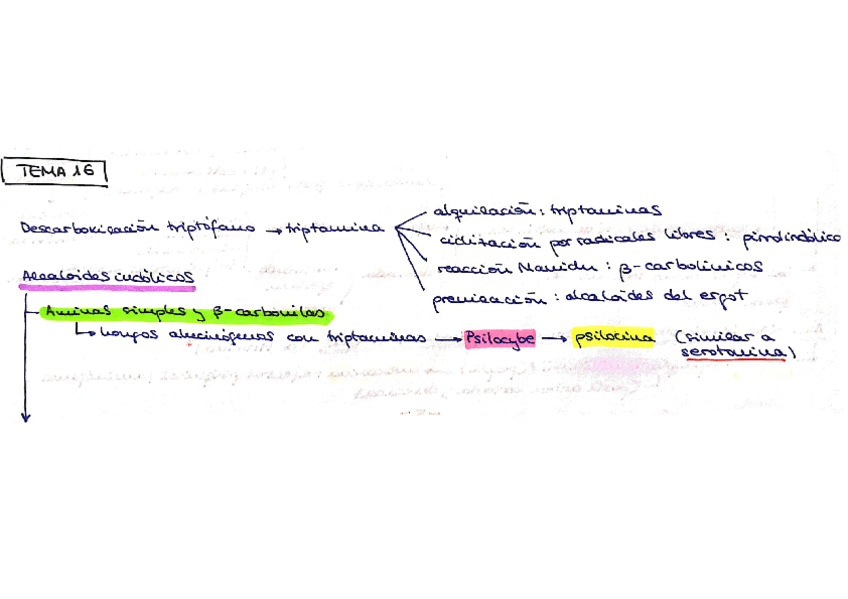 TEMA 16
alquilación: triptaminas
Descarboxicación triptófano → triptamina
ciclitación por radicales libres: pirrolindólico
reacción Mannich: β-carbolínicos
Alcaloides indólicos
prenilación: alcaloides del ergot
Aminas simples y β-carbonilas
hongos alucinógenos con triptaminas → Psilocybe → psilocina (similar a
serotonina)